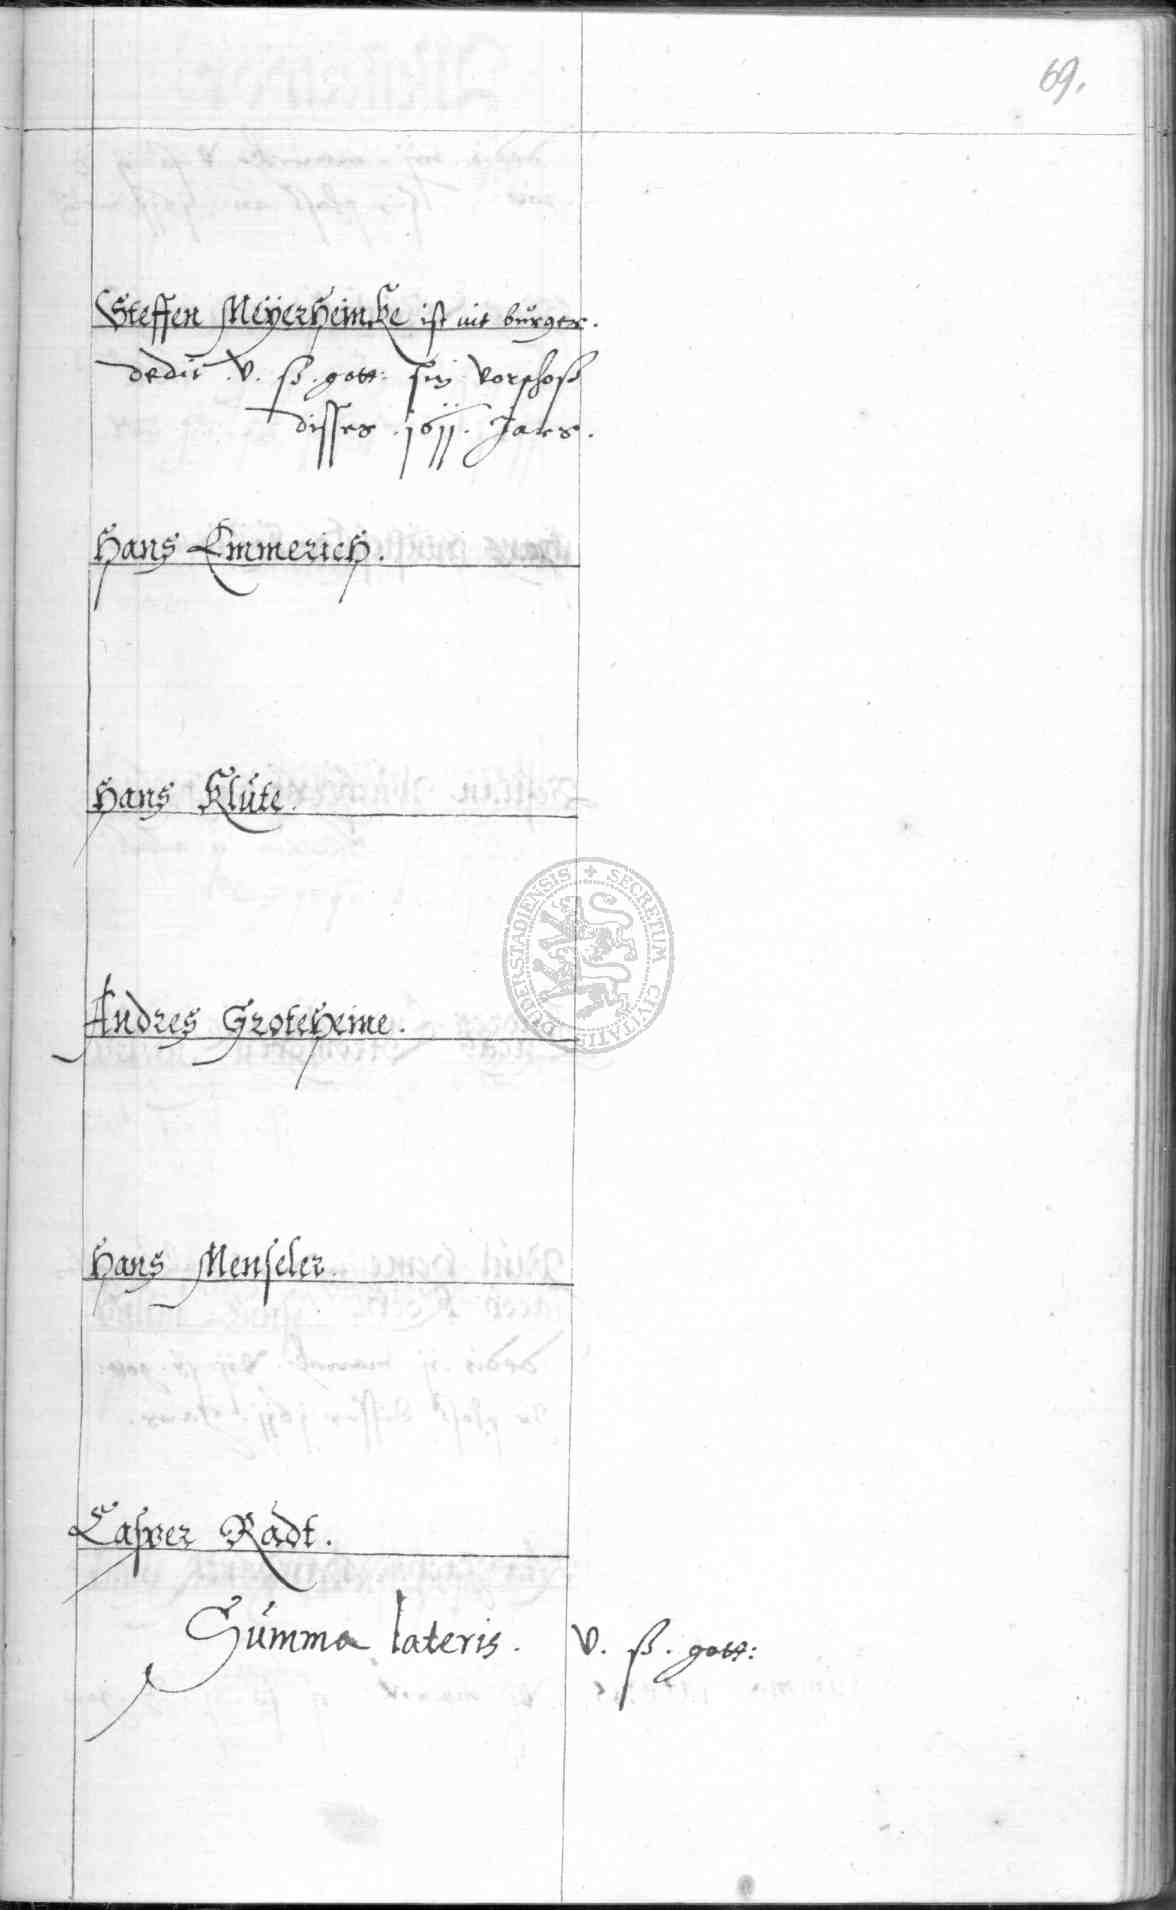 69.
Steffen Meÿerheimke ist nit bürger.
dedit .v. ß. gott: sin vorschoß
disses .1611. Jars.
Hans Emmerich.
Hans Klüte.
Andres Groteheime.
SECRETUM CIVITATIS DUDERSTADIENSIS
Hans Menseler.
Casper Radt.
Súmma lateris. v. ß. gott: